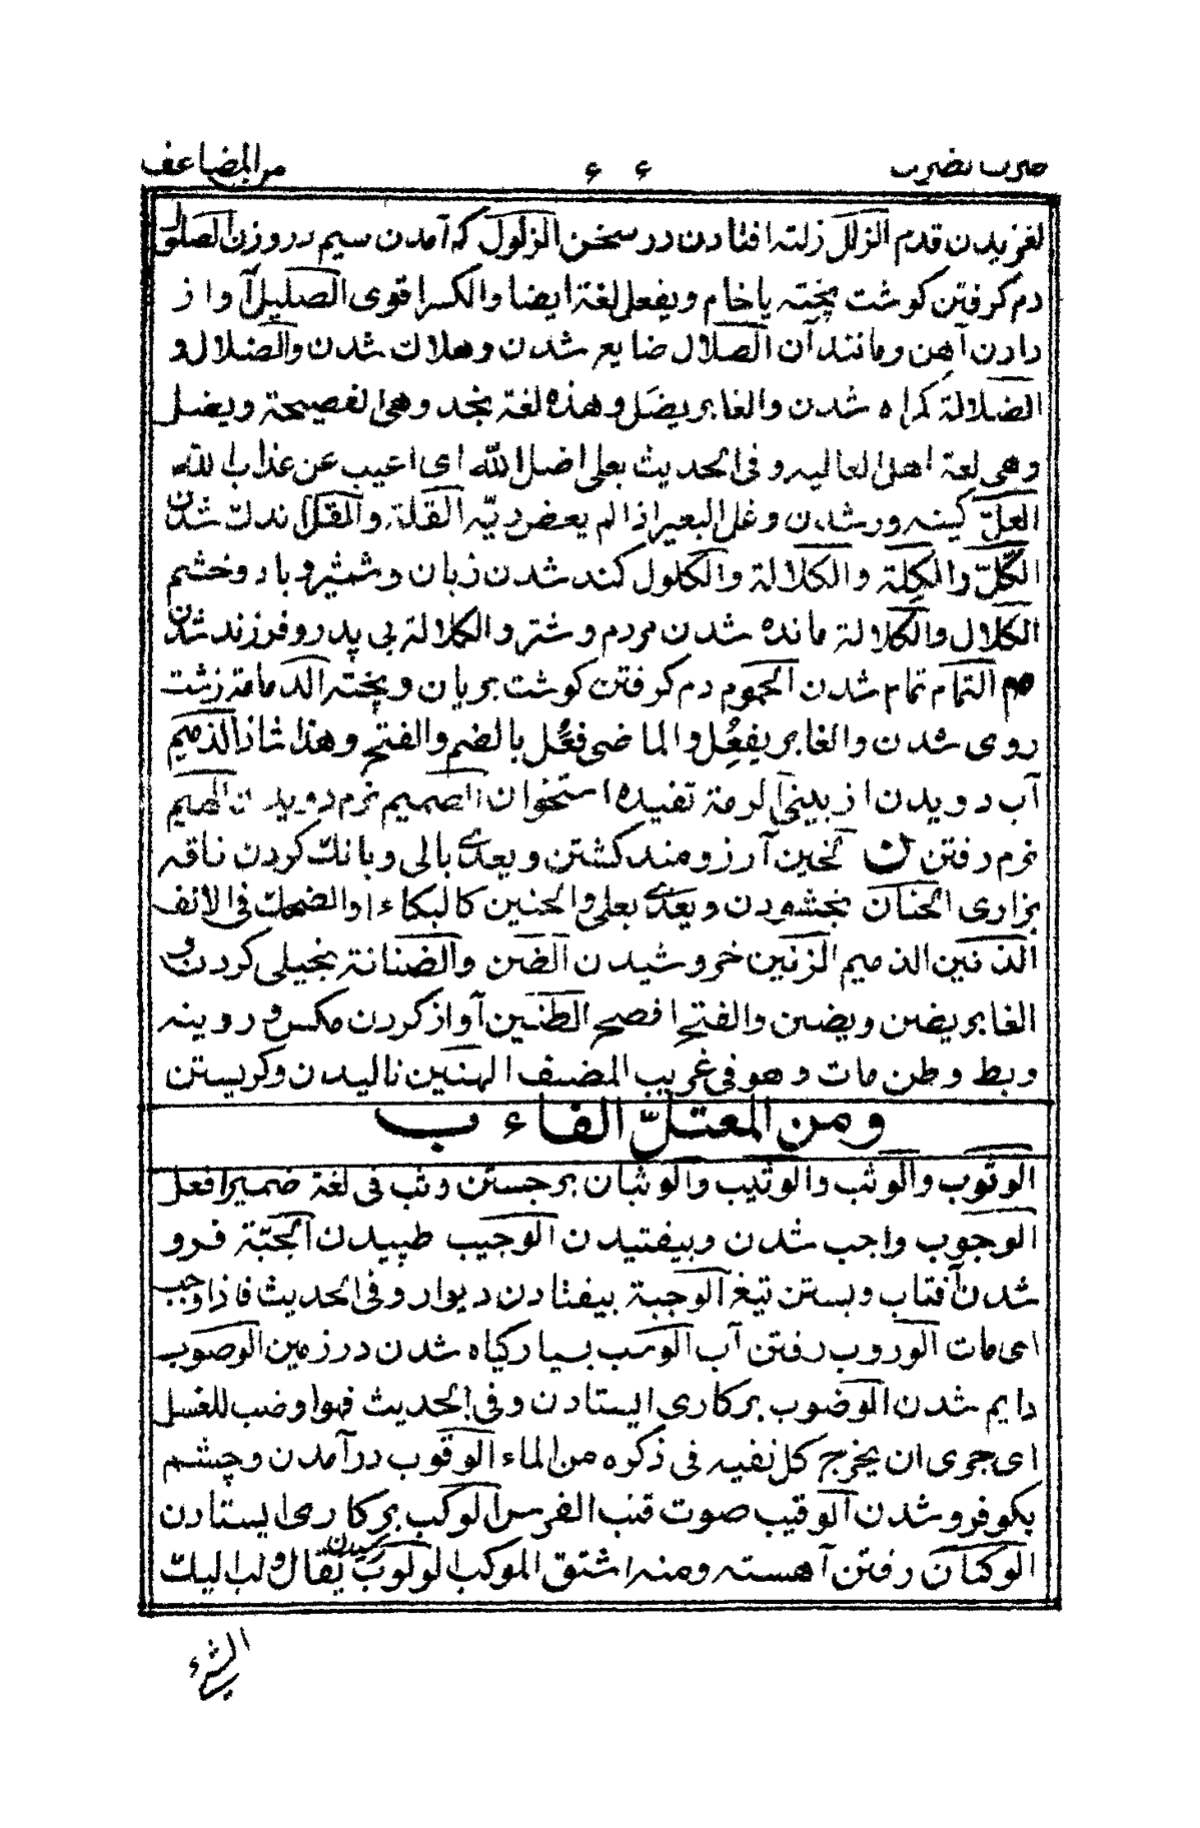 ضرب یضرب ۶۶ من المضاعف
لغزیدن قدم الزلل زلتہ افتادن در سخن الزلول کم آمدن سیم در وزن الصلول
دم کرفتن کوشت پختہ یا خام ویفعل لغة ایضا والکسر اقوی الصلیل آواز
دادن آهن ومانند آن الضلال ضایع شدن وهلاك شدن والضلال و
الضلالة کمراه شدن والغابر یضل وهذه لغة نجد وهی الفصیحة ویضل
وهی لغة اهل العالیہ وفی الحدیث بعلی اضل اللّٰه ای اغیب عن عذاب اللّٰه
الغلّ کینہ ور شدن وغل البعیر اذا لم یعض ریّہ القلة والمقل اندك شدن
الکلّ والکلة والکلالة والکلول کند شدن زبان وشمشیر وباد وخشم
الکلال والکلالة مانده شدن مردم وشتر والکلالة بی پدر وفرزند شدن
م التمام تمام شدن الجموم دم کرفتن کوشت بریان وپختہ الدمامة زشت
روی شدن والغابر یفعل والماضی فعل بالضم والفتح وهذا شاذ الذمیم
آب دویدن از بینی الرمة تفیده استخوان الصمیم نرم دویدن الهمیم
نرم رفتن ن الحنین آرزومند کشتن ویعدی بالی وبانك کردن ناقہ
بزاری الحنان بخشودن ویعدی بعلی والحنین کالبکاء او الضحك فی الانف
الذنین الذمیم الزنین خروشیدن الضن والضنانة بخیلی کردن و
الغابر یضن ویضن والفتح افصح الطنین آواز کردن مکس و رویینہ
وبط وطن مات وهو فی غریب المصنف الهنین نالیدن وکریستن
ومن المعتلّ الفاء ب
الوثوب والوثب والوثیب والوثبان برجستن وثب فی لغة حمیر اقعد
الوجوب واجب شدن وبیفتیدن الوجیب طپیدن الجبّة فرو
شدن آفتاب وبستن تیغ الوجبة بیفتادن دیوار وفی الحدیث فاذا وجب
ای مات الوروب رفتن آب الوسب بسیار کیاه شدن در زمین الوصوب
دایم شدن الوضوب بر کاری ایستادن وفی الحدیث فهو اوضب للغسل
ای جری ان یخرج کل نفیہ فی ذکره من الماء الوقوب در آمدن وچشم
بکو فرو شدن الوقیب صوت قنب الفرس الوکب بر کاری ایستادن
الوکبان رفتن آهستہ ومنہ اشتق الموکب الولوب رسیدن یقال ولب الیك
الشیء